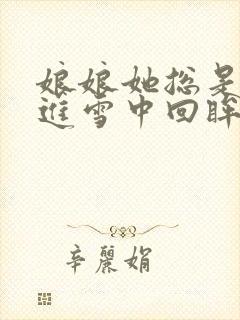 娘娘她总是
進雪中回眸
辛麗娟